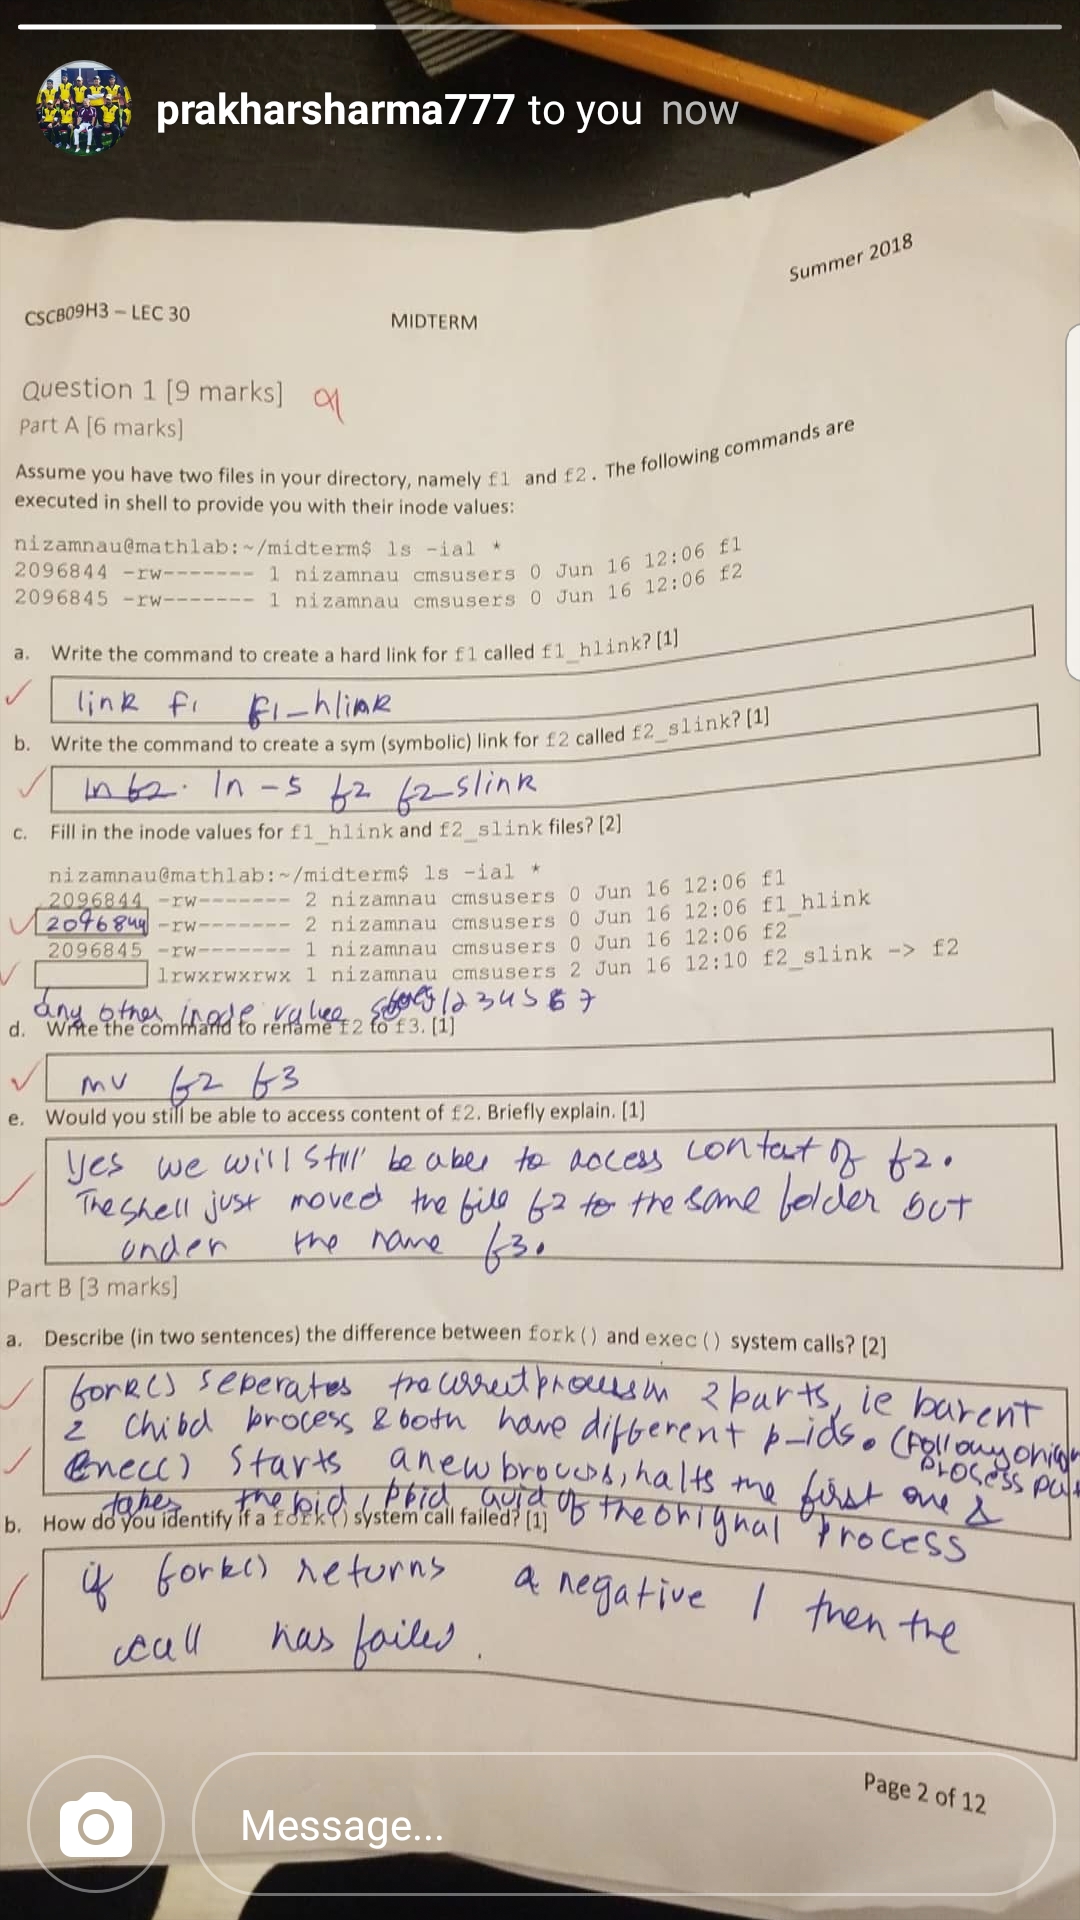 prakharsharma777 to you now
Summer 2018
CSCB09H3 – LEC 30
MIDTERM
Question 1 [9 marks] 9
Part A [6 marks]
Assume you have two files in your directory, namely f1 and f2. The following commands are
executed in shell to provide you with their inode values:
nizamnau@mathlab:~/midterm$ ls -ial *
2096844 -rw------- 1 nizamnau cmsusers 0 Jun 16 12:06 f1
2096845 -rw------- 1 nizamnau cmsusers 0 Jun 16 12:06 f2
a. Write the command to create a hard link for f1 called f1_hlink? [1]
link f1 f1_hlink
b. Write the command to create a sym (symbolic) link for f2 called f2_slink? [1]
ln f2. ln -s f2 f2_slink
c. Fill in the inode values for f1_hlink and f2_slink files? [2]
nizamnau@mathlab:~/midterm$ ls -ial *
2096844 -rw------- 2 nizamnau cmsusers 0 Jun 16 12:06 f1
2096844 -rw------- 2 nizamnau cmsusers 0 Jun 16 12:06 f1_hlink
2096845 -rw------- 1 nizamnau cmsusers 0 Jun 16 12:06 f2
lrwxrwxrwx 1 nizamnau cmsusers 2 Jun 16 12:10 f2_slink -> f2
any other inode value 1234567
d. Write the command to rename f2 to f3. [1]
mv f2 f3
e. Would you still be able to access content of f2. Briefly explain. [1]
yes we will still be able to access content of f2.
The shell just moved the file f2 to the same folder but
under the name f3.
Part B [3 marks]
a. Describe (in two sentences) the difference between fork() and exec() system calls? [2]
fork() seperates the current process in 2 parts, ie parent
& child process & both have different p-ids. (Following
process
exec() starts a new process, halts the first one &
takes the pid, ppid, guid of the orignal process
b. How do you identify if a fork() system call failed? [1]
if fork() returns a negative 1 then the
call has failed.
Page 2 of 12
Message...